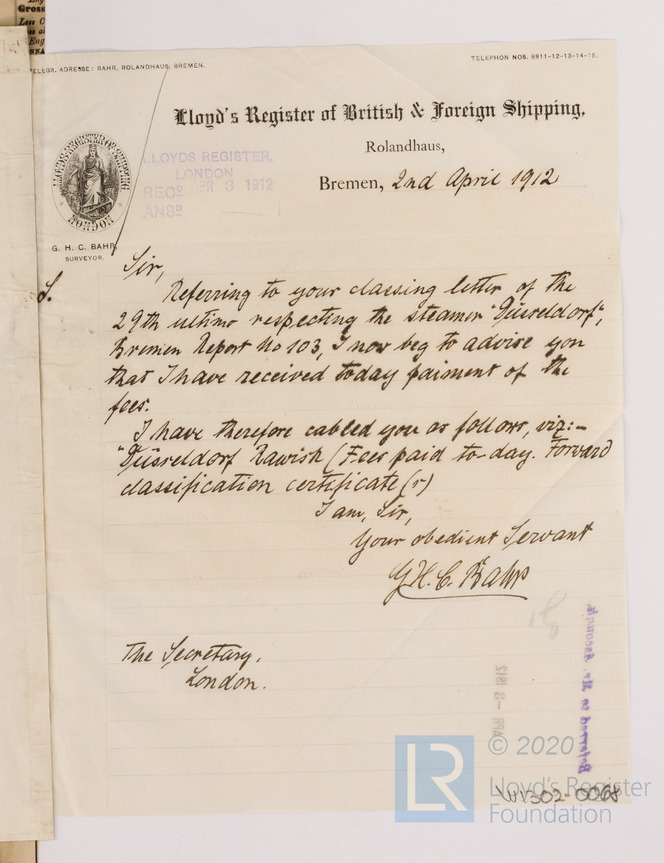 TELEGR. ADRESSE: BAHR, ROLANDHAUS, BREMEN.
TELEPHON NOS. 8911-12-13-14-15.
Lloyd's Register of British & Foreign Shipping,
Rolandhaus,
Bremen, 2nd April 1912
LLOYD'S REGISTER OF SHIPPING
LONDON
LLOYDS REGISTER,
LONDON
RECD APR 3 1912
ANSD
G. H. C. BAHR,
SURVEYOR.
Sir,
Referring to your classing letter of the
29th ultimo respecting the steamer "Düsseldorf",
Bremen Report No 103, I now beg to advise you
that I have received today paiment of the
fees.
I have therefore cabled you as follows, viz:-
"Düsseldorf Rawish (Fees paid to-day. Forward
classification certificate (s)
I am, Sir,
Your obedient Servant
G.H.C. Bahr
The Secretary,
London.
APR - 3 1912
Referred to Mr.
LR
© 2020
Lloyd's Register
Foundation
WV302-0068